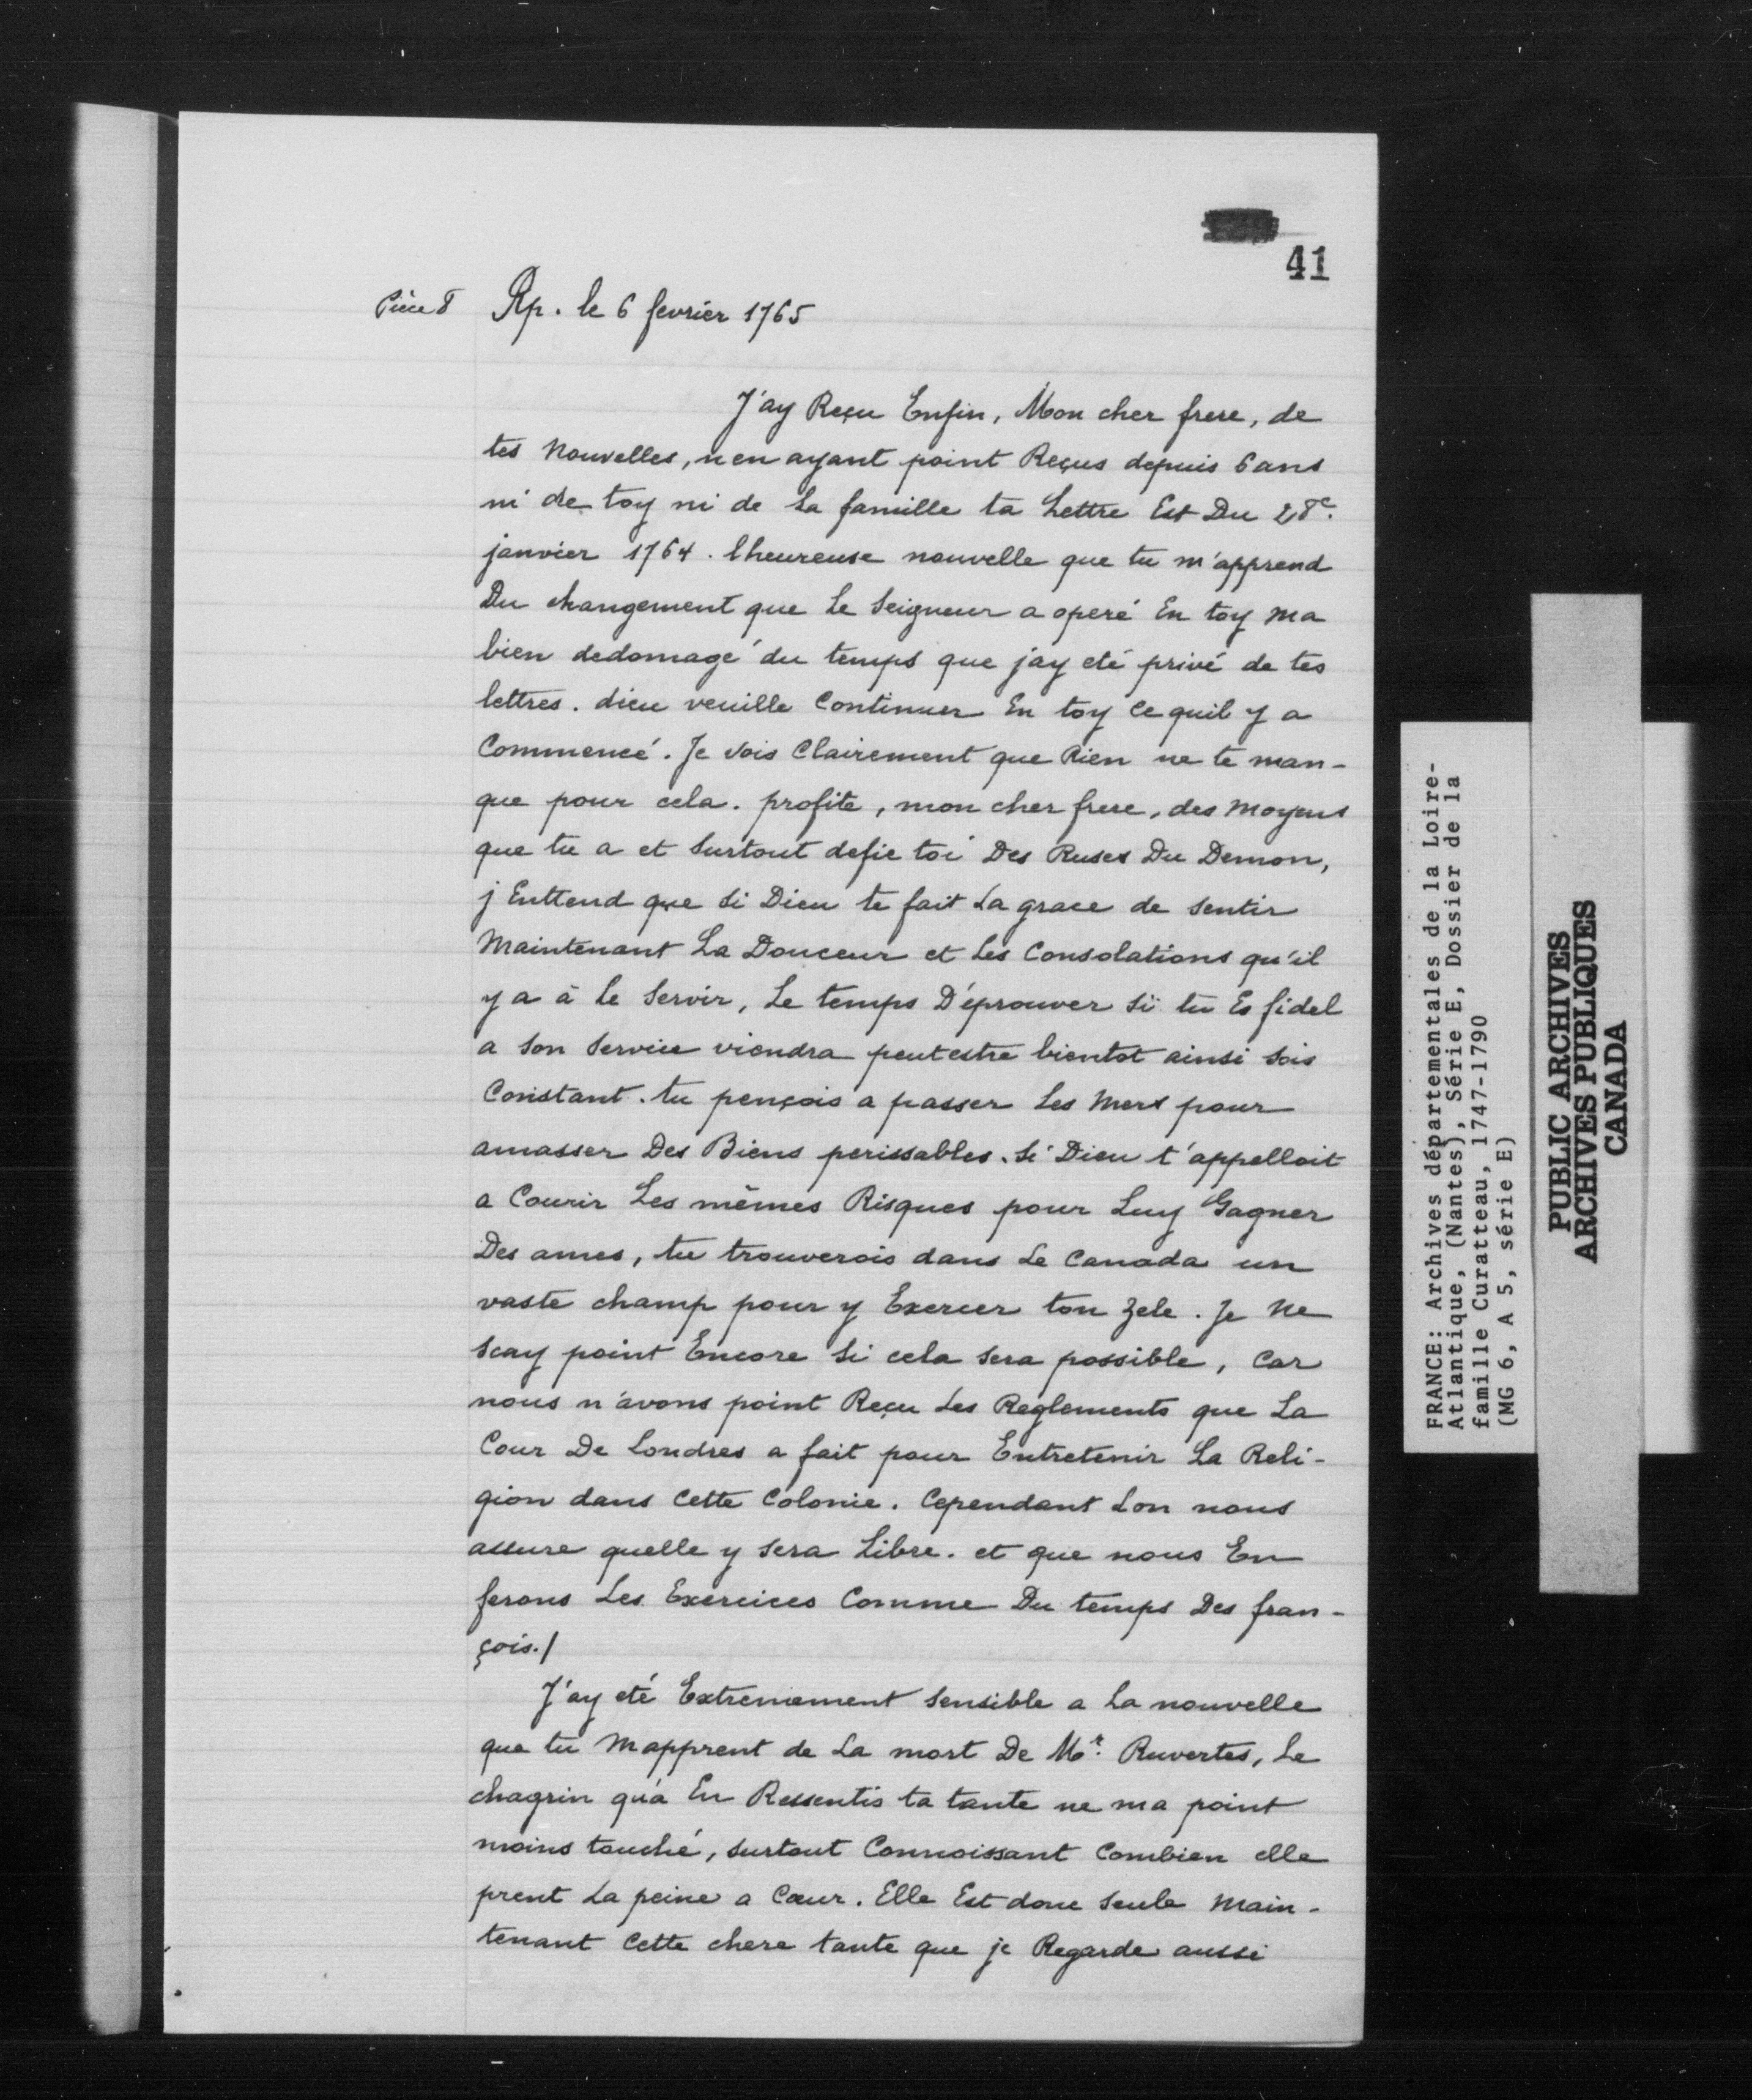 41
Pièce 8 Rp. le 6 fevrier 1765
J'ay Reçu Enfin, Mon cher frere, de
tes Nouvelles, n en ayant point Reçus depuis 6 ans
ni de toy ni de la famille ta Lettre Est Du 28e.
janvier 1764. lheureuse nouvelle que tu m'apprend
Du changement que le Seigneur a operé En toy ma
bien dedomagé du temps que jay eté privé de tes
lettres. dieu veuille Continuer En toy Ce quil y a
Commencé. Je vois Clairement que Rien ne te man-
que pour cela. profite, mon cher frere, des Moyens
que tu a et Surtout defie toi Des Ruses Du Demon,
j Enttend que Si Dieu te fait La grace de Sentir
Maintenant La Douceur et Les Consolations qu'il
y a à le Servir, Le temps D'éprouver Si tu Es fidel
a Son Service viendra peutestre bientot ainsi Sois
Constant. tu pençois a passer Les Mers pour
amasser Des Biens perissables. Si Dieu t'appelloit
a Courir Les mêmes Risques pour Luy Gagner
Des ames, tu trouverois dans Le Canada un
vaste champ pour y Exercer ton Zele. Je Ne
Scay point Encore Si cela Sera possible, Car
nous n'avons point Reçu Les Reglements que La
Cour De Londres a fait pour Entretenir La Reli-
gion dans Cette Colonie. Cependant Lon nous
assure quelle y Sera Libre. et que nous En
ferons Les Exercices Comme Du temps Des fran-
çois./
J'ay eté Extremement Sensible a La nouvelle
que tu Mapprent de La mort De Mr. Ruvertes, Le
chagrin qu'a En Ressentis ta tante ne ma point
moins touché, Surtout Connoissant Combien elle
prent La peine a Cœur. Elle Est donc Seule Main-
tenant Cette chere tante que je Regarde aussi
FRANCE: Archives départementales de la Loire-
Atlantique, (Nantes), Série E, Dossier de la
famille Curatteau, 1747-1790
(MG 6, A 5, série E)
PUBLIC ARCHIVES
ARCHIVES PUBLIQUES
CANADA